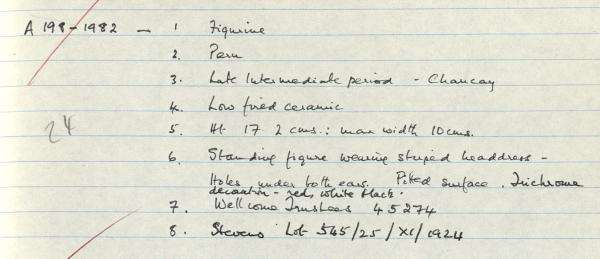 A 198-1982 — 1 Figurine
2. Peru
3. Late Intermediate period - Chancay
4. Low fired ceramic
24
5. Ht 17.2 cms.: max width 10 cms.
6. Standing figure wearing striped headdress -
Holes under both ears. Pitted surface. Trichrome
decoration - red, white black.
7. Wellcome Trustees 45274
8. Stevens Lot 545/25/XI/1924